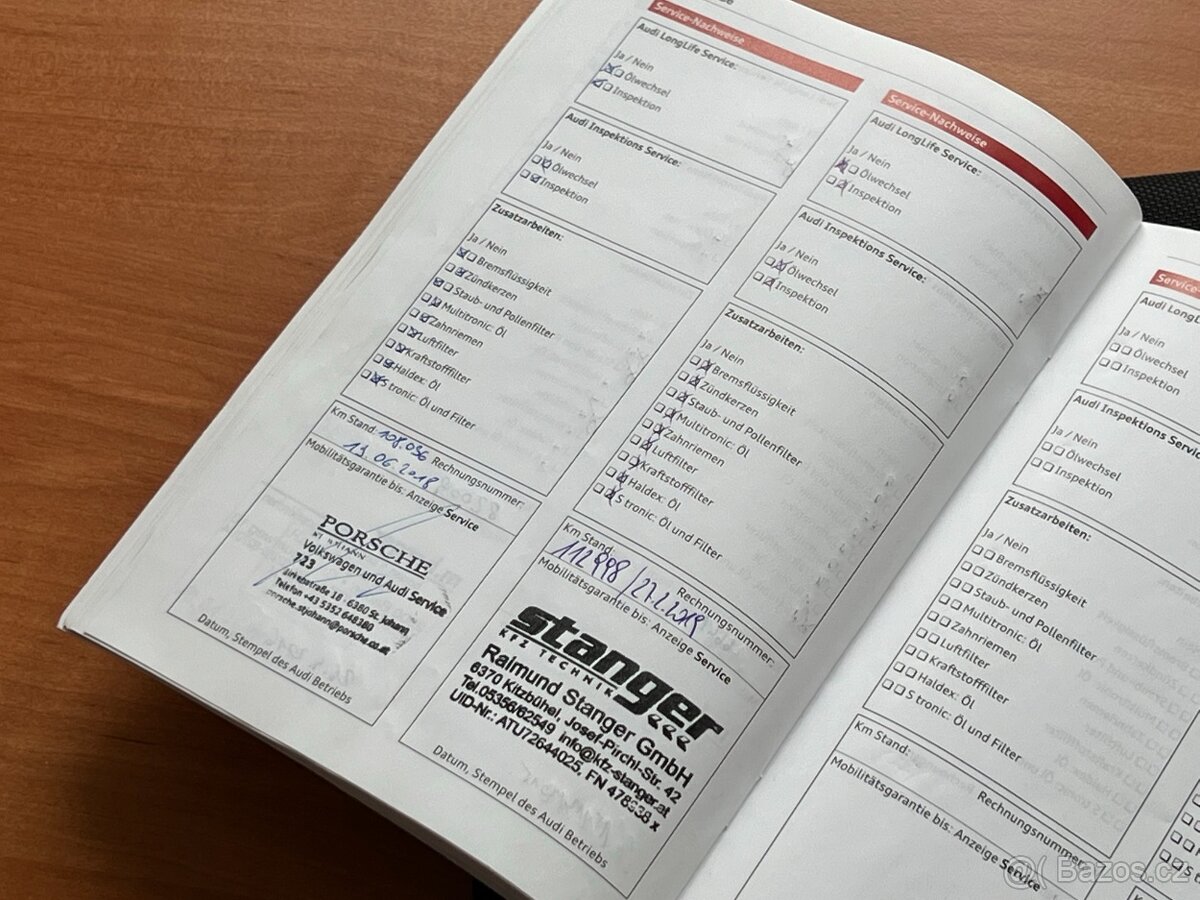 Service-Nachweise
Audi LongLife Service:
Ja / Nein
Ölwechsel
Inspektion
Audi Inspektions Service:
Ja / Nein
Ölwechsel
Inspektion
Zusatzarbeiten:
Ja / Nein
Bremsflüssigkeit
Zündkerzen
Staub- und Pollenfilter
Multitronic: Öl
Zahnriemen
Luftfilter
Kraftstofffilter
Haldex: Öl
S tronic: Öl und Filter
Km Stand: 108.036 Rechnungsnummer:
Mobilitätsgarantie bis: Anzeige Service
PORSCHE
Volkswagen und Audi Service
723
6380 St. Johann
Telefon +43 5352 648380
porsche.stjohann@porsche.co.at
Datum, Stempel des Audi Betriebs
Service-Nachweise
Audi LongLife Service:
Ja / Nein
Ölwechsel
Inspektion
Audi Inspektions Service:
Ja / Nein
Ölwechsel
Inspektion
Zusatzarbeiten:
Ja / Nein
Bremsflüssigkeit
Zündkerzen
Staub- und Pollenfilter
Multitronic: Öl
Zahnriemen
Luftfilter
Kraftstofffilter
Haldex: Öl
S tronic: Öl und Filter
Km Stand: Rechnungsnummer:
Mobilitätsgarantie bis: Anzeige Service
stanger
KFZ TECHNIK
Raimund Stanger GmbH
6370 Kitzbühel, Josef-Pirchl-Str. 42
Tel.05356/62549 info@kfz-stanger.at
UID-Nr.: ATU72644025, FN 478938 x
Datum, Stempel des Audi Betriebs
Service-
Audi LongL
Ja / Nein
Ölwechsel
Inspektion
Audi Inspektions Servic
Ja / Nein
Ölwechsel
Inspektion
Zusatzarbeiten:
Ja / Nein
Bremsflüssigkeit
Zündkerzen
Staub- und Pollenfilter
Multitronic: Öl
Zahnriemen
Luftfilter
Kraftstofffilter
Haldex: Öl
S tronic: Öl und Filter
Km Stand: Rechnungsnummer:
Mobilitätsgarantie bis: Anzeige Service
Bazoš.cz